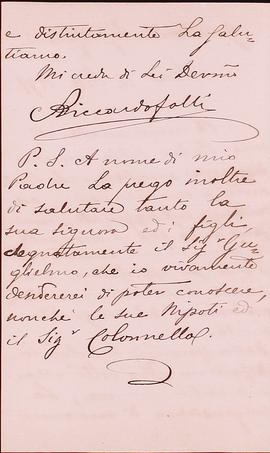 e distintamente La Salu-
tiamo.
Mi creda di Lei Devmo
Riccardo Jatti
P. S. A nome di mio
Padre La prego inoltre
di salutare tanto la
sua signora ed i figli
segnatamente il Sigr Gu-
glielmo, che io vivamente
desidererei di poter conoscere,
nonchè le sue Nipoti ed
il Sigr Colonnello.